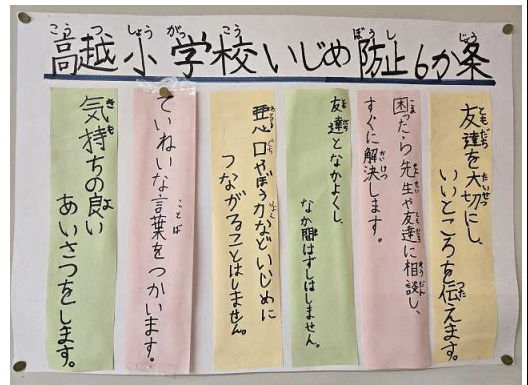 高越小学校いじめ防止6か条
友達を大切にし、
いいところを伝えます。
困ったら先生や友達に相談し、
すぐに解決します。
友達となかよくし、
なか間はずしはしません。
悪口やぼう力などいじめに
つながることはしません。
ていねいな言葉をつかいます。
気持ちの良い
あいさつをします。